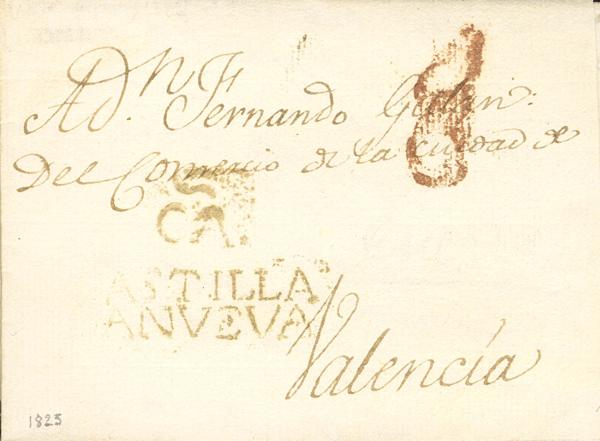 A Dn. Fernando
Del Comercio de la ciudad de
S
CA.
ASTILLA
ANVEVA
Valencía
1825